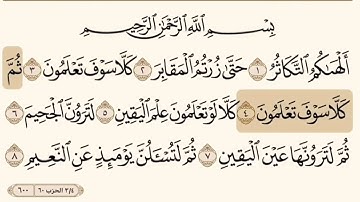 بِسْمِ ٱللَّهِ ٱلرَّحْمَٰنِ ٱلرَّحِيمِ
أَلْهَىٰكُمُ ٱلتَّكَاثُرُ ١ حَتَّىٰ زُرْتُمُ ٱلْمَقَابِرَ ٢ كَلَّا سَوْفَ تَعْلَمُونَ ٣ ثُمَّ
كَلَّا سَوْفَ تَعْلَمُونَ ٤ كَلَّا لَوْ تَعْلَمُونَ عِلْمَ ٱلْيَقِينِ ٥ لَتَرَوُنَّ ٱلْجَحِيمَ ٦
ثُمَّ لَتَرَوُنَّهَا عَيْنَ ٱلْيَقِينِ ٧ ثُمَّ لَتُسْـَٔلُنَّ يَوْمَئِذٍ عَنِ ٱلنَّعِيمِ ٨
٣/٤ الحزب ٦٠ ٦٠٠